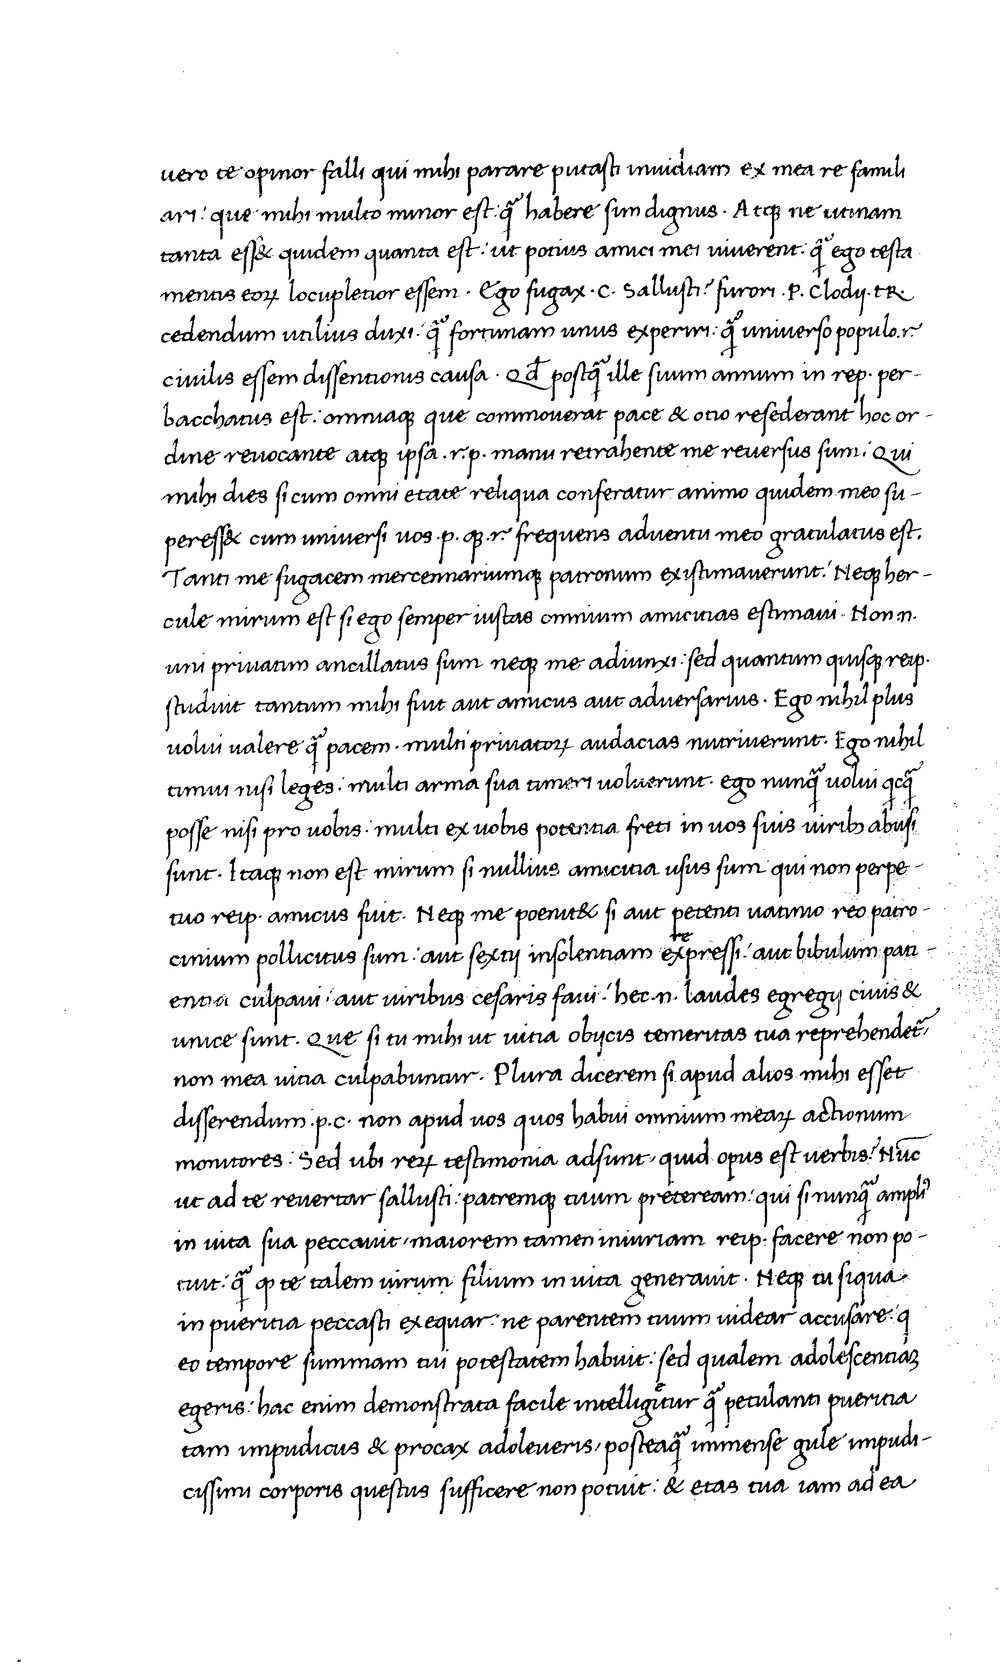 vero te opinor falli qui mihi parare putasti inuidiam ex mea re famili
ari: que mihi multo minor est: qᷓ habere sim dignus. Atqꝫ ne utinam
tanta ess& quidem quanta est: ut potius amici mei viuerent: qᷓ ego testa
mentis eoꝝ locupletior essem. Ego fugax .C. Sallusti? furori .P. Clodij .tR.
cedendum utilius duxi: qᷓ fortunam unus experiri: qᷓ universo populo .r.
civilis essem dissentionis causa. Qđ postqᷓ ille suum annum in rep. per-
bacchatus est: omniaqꝫ que commoverat pace & otio resederant hoc or-
dine revocante atqꝫ ipsa .r.p. manu retrahente me reversus sum: Qui
mihi dies si cum omni etate reliqua conferatur animo quidem meo su-
peress& cum universi vos .p. qꝫ .r. frequens adventu meo gratulatus est.
Tanti me fugacem mercennariumqꝫ patronum existimaverunt. Neqꝫ her-
cule mirum est si ego semper iustas omnium amicitias estimavi. Non .n.
uni privatim ancillatus sum neqꝫ me adiunxi: sed quantum quisqꝫ reip.
studuit tantum mihi fuit aut amicus aut adversarius. Ego nihil plus
volui valere qᷓ pacem. multi privatoꝝ audacias nutriverunt. Ego nihil
timui nisi leges: multi arma sua timeri voluerunt. ego nunqᷓ volui qicqᷓ
posse nisi pro vobis: multi ex vobis potentia freti in vos suis viribꝫ abusi
sunt. Itaqꝫ non est mirum si nullius amicitia usus sum qui non perpe-
tuo reip. amicus fuit. Neqꝫ me poenit& si aut petenti vatinio reo patro-
cinium pollicitus sum: aut sextij insolentiam expressi: aut bibulum pati-
re
entia culpavi: aut viribus cesaris favi: hec .n. laudes egregij civis &
unice sunt. Que si tu mihi ut vitia obijcis temeritas tua reprehendet᷑:
non mea vitia culpabuntur. Plura dicerem si apud alios mihi esset
disserendum .p.c. non apud vos quos habui omnium meaꝝ actionum
monitores: Sed ubi reꝝ testimonia adsunt, quid opus est verbis? Nūc
ut ad te revertar sallusti: patremqꝫ tuum preteream: qui si nunqᷓ ampliꝰ
in vita sua peccavit, maiorem tamen iniuriam reip. facere non po-
tuit: qᷓ ꝙ te talem virum filium in vita generavit. Neqꝫ tu siqua
in pueritia peccasti exequar: ne parentem tuum videar accusare: q
eo tempore summam tui potestatem habuit: sed qualem adolescentiaꝫ
egeris: hac enim demonstrata facile intelligitur qᷓ petulanti pueritia
tam impudicus & procax adoleveris, posteaqᷓ immense gule impudi-
cissimi corporis questus sufficere non potuit: & etas tua iam ad ea